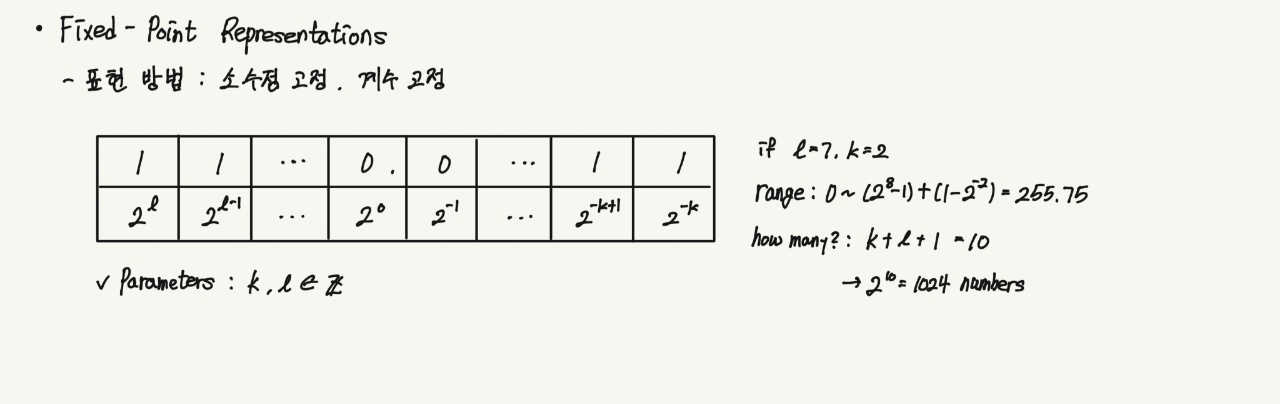 • Fixed-Point Representations
- 표현 방법 : 소수점 고정, 계수 고정
1 1 ... 0 . 0 ... 1 1
2^l 2^{l-1} ... 2^0 2^{-1} ... 2^{-k+1} 2^{-k}
✓ Parameters : k, l ∈ ℤ
if l=7, k=2
range : 0 ~ (2^8-1)+(1-2^{-2}) = 255.75
how many? : k+l+1 = 10
→ 2^{10} = 1024 numbers